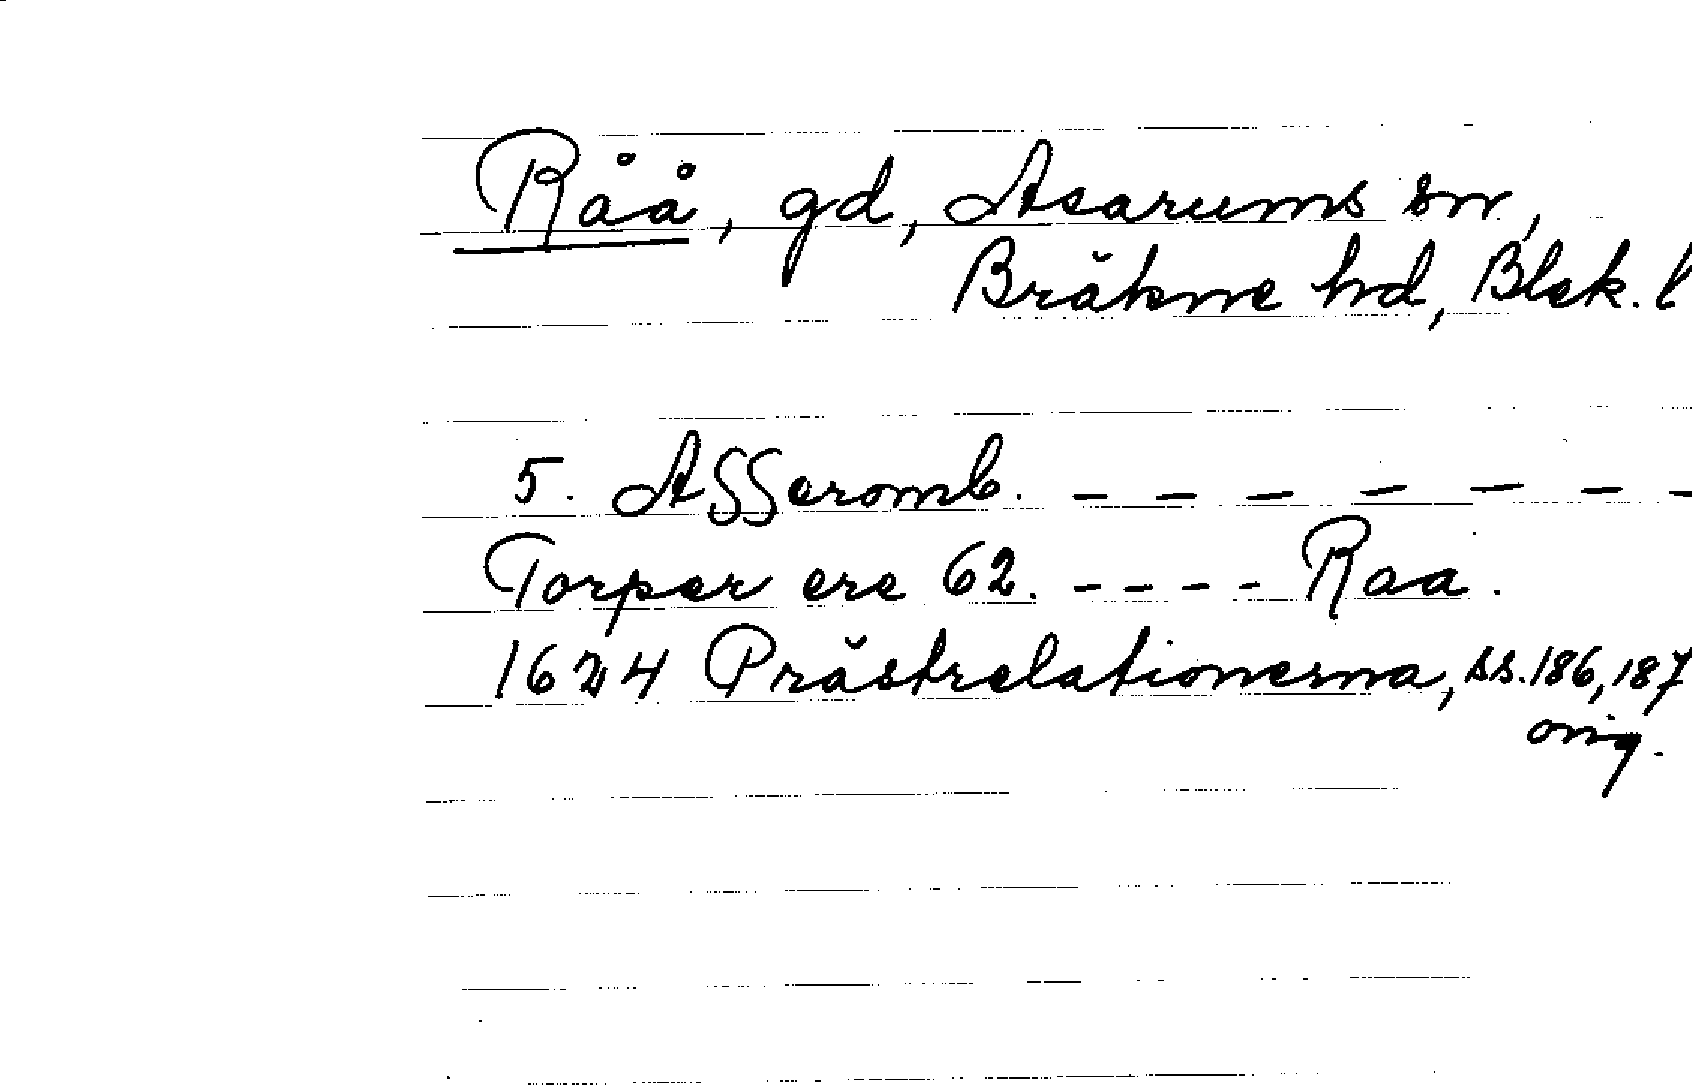 Råå, gd, Asarums sn,
Bräkne hd, Blek. l
5. ASSeromb. — — — — — — —
Torper ere 62. - - - - Raa.
1624 Prästrelationerna, ss. 186, 187
orig.